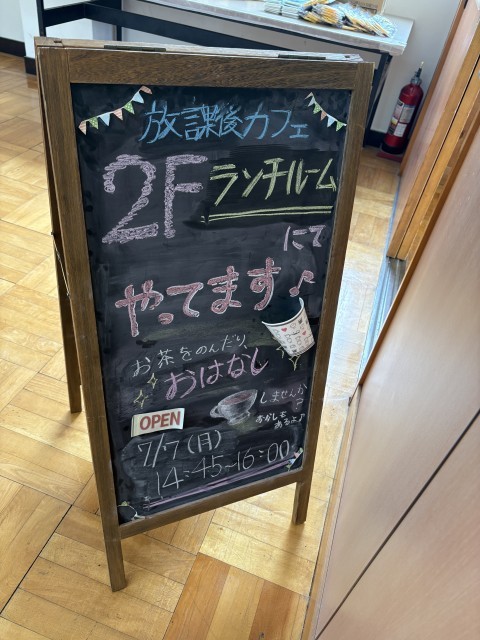 放課後カフェ
2F ランチルーム
にて
やってます♪
お茶をのんだり、
おはなし
しませんか?
おかしも
あるよ♪
OPEN
7/7(月)
14:45~16:00